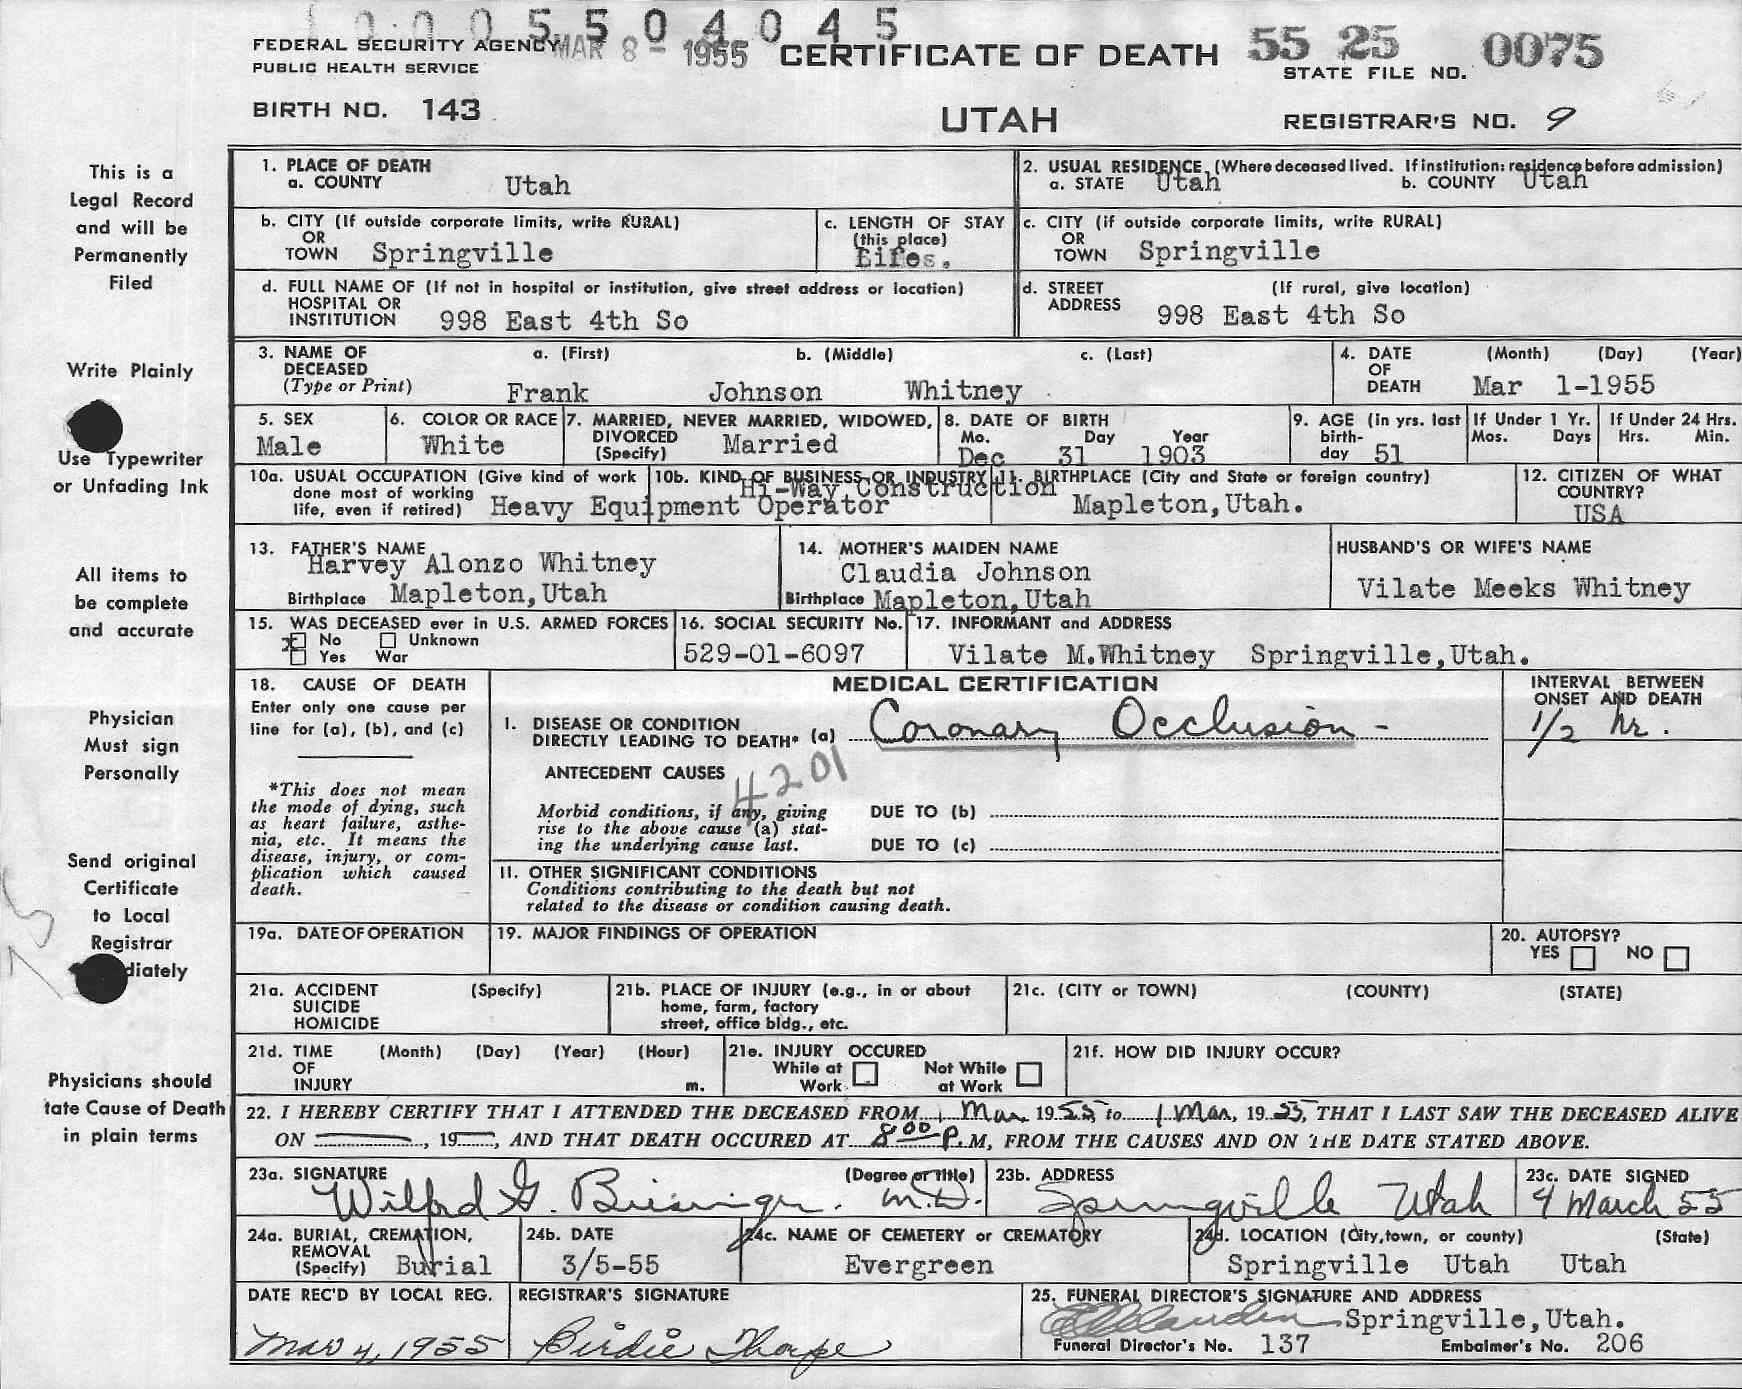 1 0 0 0 5 5 0 4 0 4 5
FEDERAL SECURITY AGENCY MAR 8 - 1955 CERTIFICATE OF DEATH 55 25 0075
PUBLIC HEALTH SERVICE STATE FILE NO.
BIRTH NO. 143 UTAH REGISTRAR'S NO. 9
This is a
Legal Record
and will be
Permanently
Filed
Write Plainly
Use Typewriter
or Unfading Ink
All items to
be complete
and accurate
Physician
Must sign
Personally
Send original
Certificate
to Local
Registrar
diately
Physicians should
tate Cause of Death
in plain terms
1. PLACE OF DEATH
a. COUNTY Utah
2. USUAL RESIDENCE (Where deceased lived. If institution: residence before admission)
a. STATE Utah b. COUNTY Utah
b. CITY (If outside corporate limits, write RURAL)
OR
TOWN Springville
c. LENGTH OF STAY
(this place)
c. CITY (if outside corporate limits, write RURAL)
OR
TOWN Springville
d. FULL NAME OF (If not in hospital or institution, give street address or location)
HOSPITAL OR
INSTITUTION 998 East 4th So
d. STREET (If rural, give location)
ADDRESS 998 East 4th So
3. NAME OF a. (First) b. (Middle) c. (Last)
DECEASED
(Type or Print) Frank Johnson Whitney
4. DATE (Month) (Day) (Year)
OF
DEATH Mar 1-1955
5. SEX
Male
6. COLOR OR RACE
White
7. MARRIED, NEVER MARRIED, WIDOWED,
DIVORCED
(Specify) Married
8. DATE OF BIRTH
Mo. Day Year
Dec 31 1903
9. AGE (in yrs. last
birth-
day 51
If Under 1 Yr.
Mos. Days
If Under 24 Hrs.
Hrs. Min.
10a. USUAL OCCUPATION (Give kind of work
done most of working
life, even if retired) Heavy Equipment Operator
10b. KIND OF BUSINESS OR INDUSTRY
Hi-Way Construction
11. BIRTHPLACE (City and State or foreign country)
Mapleton, Utah.
12. CITIZEN OF WHAT
COUNTRY?
USA
13. FATHER'S NAME
Harvey Alonzo Whitney
Birthplace Mapleton, Utah
14. MOTHER'S MAIDEN NAME
Claudia Johnson
Birthplace Mapleton, Utah
HUSBAND'S OR WIFE'S NAME
Vilate Meeks Whitney
15. WAS DECEASED ever in U.S. ARMED FORCES
x No Unknown
Yes War
16. SOCIAL SECURITY No.
529-01-6097
17. INFORMANT and ADDRESS
Vilate M.Whitney Springville, Utah.
18. CAUSE OF DEATH
Enter only one cause per
line for (a), (b), and (c)
*This does not mean
the mode of dying, such
as heart failure, asthe-
nia, etc. It means the
disease, injury, or com-
plication which caused
death.
MEDICAL CERTIFICATION
INTERVAL BETWEEN
ONSET AND DEATH
I. DISEASE OR CONDITION
DIRECTLY LEADING TO DEATH* (a) Coronary Occlusion - 1/2 hr.
ANTECEDENT CAUSES 4201
Morbid conditions, if any, giving
rise to the above cause (a) stat-
ing the underlying cause last.
DUE TO (b)
DUE TO (c)
II. OTHER SIGNIFICANT CONDITIONS
Conditions contributing to the death but not
related to the disease or condition causing death.
19a. DATE OF OPERATION
19. MAJOR FINDINGS OF OPERATION
20. AUTOPSY?
YES NO
21a. ACCIDENT (Specify)
SUICIDE
HOMICIDE
21b. PLACE OF INJURY (e.g., in or about
home, farm, factory
street, office bldg., etc.
21c. (CITY or TOWN) (COUNTY) (STATE)
21d. TIME (Month) (Day) (Year) (Hour)
OF
INJURY m.
21e. INJURY OCCURED
While at Not While
Work at Work
21f. HOW DID INJURY OCCUR?
22. I HEREBY CERTIFY THAT I ATTENDED THE DECEASED FROM 1 Mar 1955 to 1 Mar, 1955, THAT I LAST SAW THE DECEASED ALIVE
ON , 19 , AND THAT DEATH OCCURED AT 8 00 P.M, FROM THE CAUSES AND ON THE DATE STATED ABOVE.
23a. SIGNATURE (Degree or Title)
Wilford G. Biesinger M.D.
23b. ADDRESS
Springville Utah
23c. DATE SIGNED
4 March 55
24a. BURIAL, CREMATION,
REMOVAL
(Specify) Burial
24b. DATE
3/5-55
24c. NAME OF CEMETERY or CREMATORY
Evergreen
24d. LOCATION (City, town, or county) (State)
Springville Utah Utah
DATE REC'D BY LOCAL REG.
Mar 4, 1955
REGISTRAR'S SIGNATURE
Birdie Thorpe
25. FUNERAL DIRECTOR'S SIGNATURE AND ADDRESS
Springville, Utah.
Funeral Director's No. 137 Embalmer's No. 206